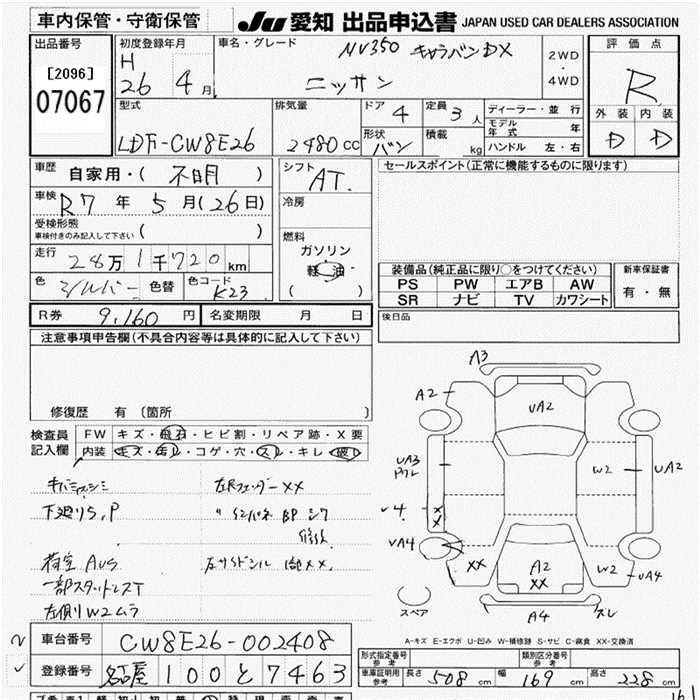 車内保管・守衛保管
JU 愛知 出品申込書 JAPAN USED CAR DEALERS ASSOCIATION
出品番号
[2096]
07067
初度登録年月
H
26 4 月
車名・グレード
NV350 キャラバンDX
ニッサン
2WD
・
4WD
評価点
R
外装 内装
D D
型式
LDF-CW8E26
排気量
2480 CC
ドア 4
形状 バン
定員 3 人
積載 kg
ディーラー・並行
モデル年式 年
ハンドル 左・右
車歴 自家用・( 不明 )
車検 R7 年 5 月(26日)
受検形態
車検付きのみ記入して下さい ( )
走行 28万1千720 km
色 シルバー 色替 色コード K23
シフト AT.
冷房
燃料
ガソリン
軽油
( )
セールスポイント(正常に機能するものに限ります)
装備品(純正品に限り○をつけてください)
PS PW エアB AW
SR ナビ TV カワシート
新車保証書
有・無
R券 9,160 円 名変期限 月 日
後日品
注意事項申告欄(不具合内容等は具体的に記入して下さい)
修復歴 有 〔箇所 〕
検査員
記入欄
FW キズ・飛石・ヒビ割・リペア跡・X要
内装 キズ・汚れ・コゲ・穴・スレ・キレ・破レ
下廻りS,P
左Fフェンダー XX
〃 インパネ BP シワ
修後
荷室 AUS
一部スタットレスT
左側リW2ムラ
A3
A2
UA2
UA3
W2
UA2
UA4
XX
A2
XX
W2
UA4
A4
スレ
スペア
A-キズ E-エクボ U-凹み W-補修跡 S-サビ C-腐食 XX-交換済
車台番号 CW8E26-002408
登録番号 名古屋 100 と 7463
形式指定番号
参考
類別区分番号
参考
車庫証明用
参考
長さ 508 cm 幅 169 cm 高さ 228 cm